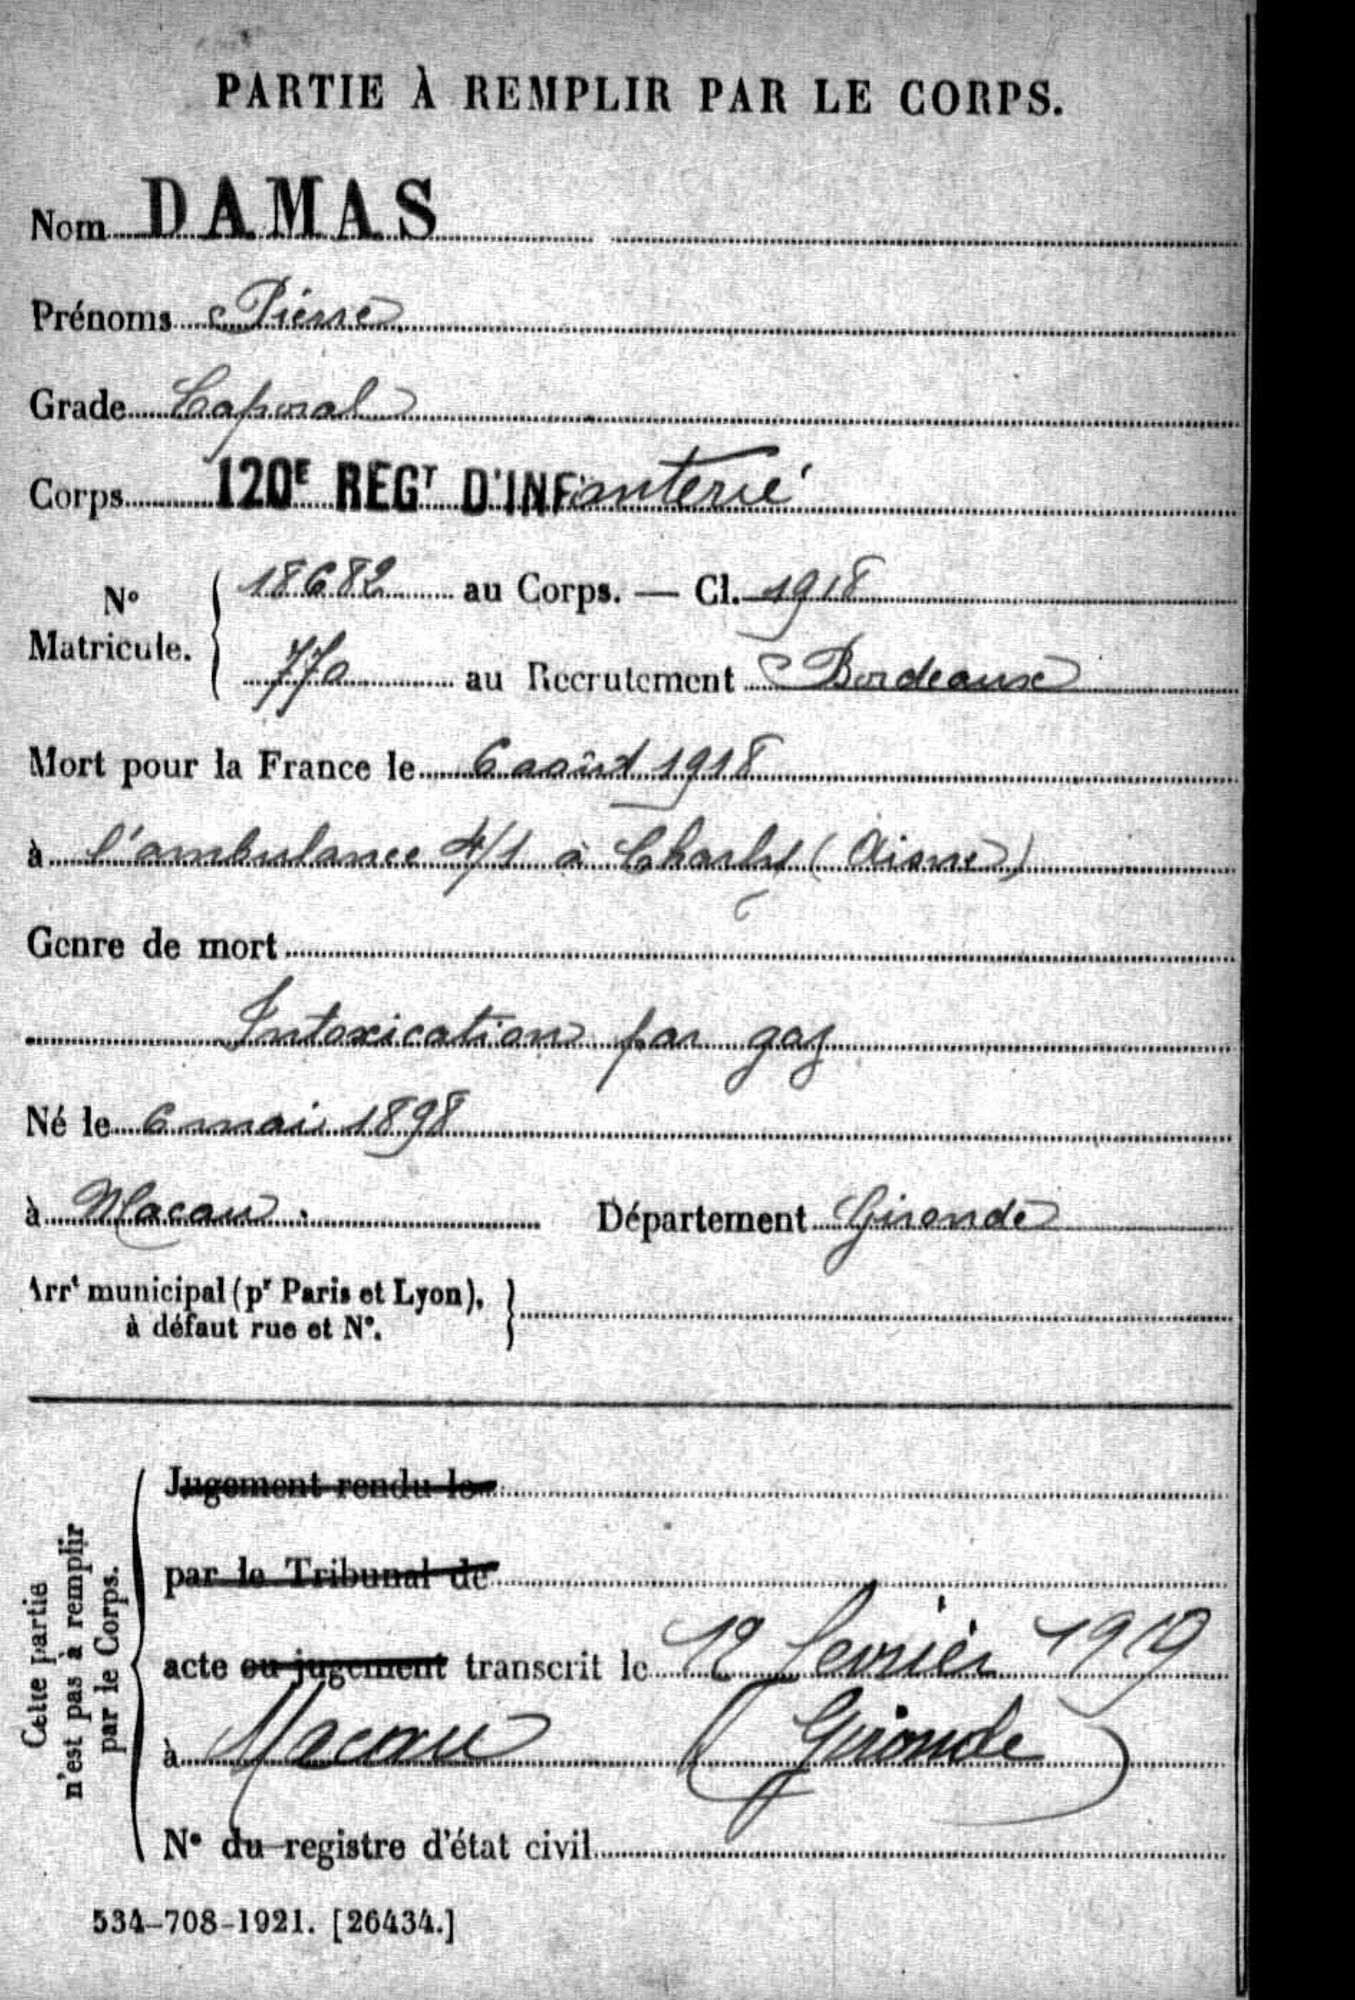 PARTIE À REMPLIR PAR LE CORPS.
Nom DAMAS
Prénoms Pierre
Grade Caporal
Corps 120E REGT D'INFanterie
No Matricule. { 18682 au Corps. — Cl. 1918
770 au Recrutement Bordeaux
Mort pour la France le 6 août 1918
à l'ambulance 4/1 à Charly (Aisne)
Genre de mort
Intoxication par gaz
Né le 6 mai 1898
à Macau. Département Gironde
Arrt municipal (pr Paris et Lyon), }
à défaut rue et No.
Cette partie
n'est pas à remplir
par le Corps.
Jugement rendu le
par le Tribunal de
acte ou jugement transcrit le 12 fevrier 1919
à Macau (Gironde)
No du registre d'état civil
534-708-1921. [26434.]